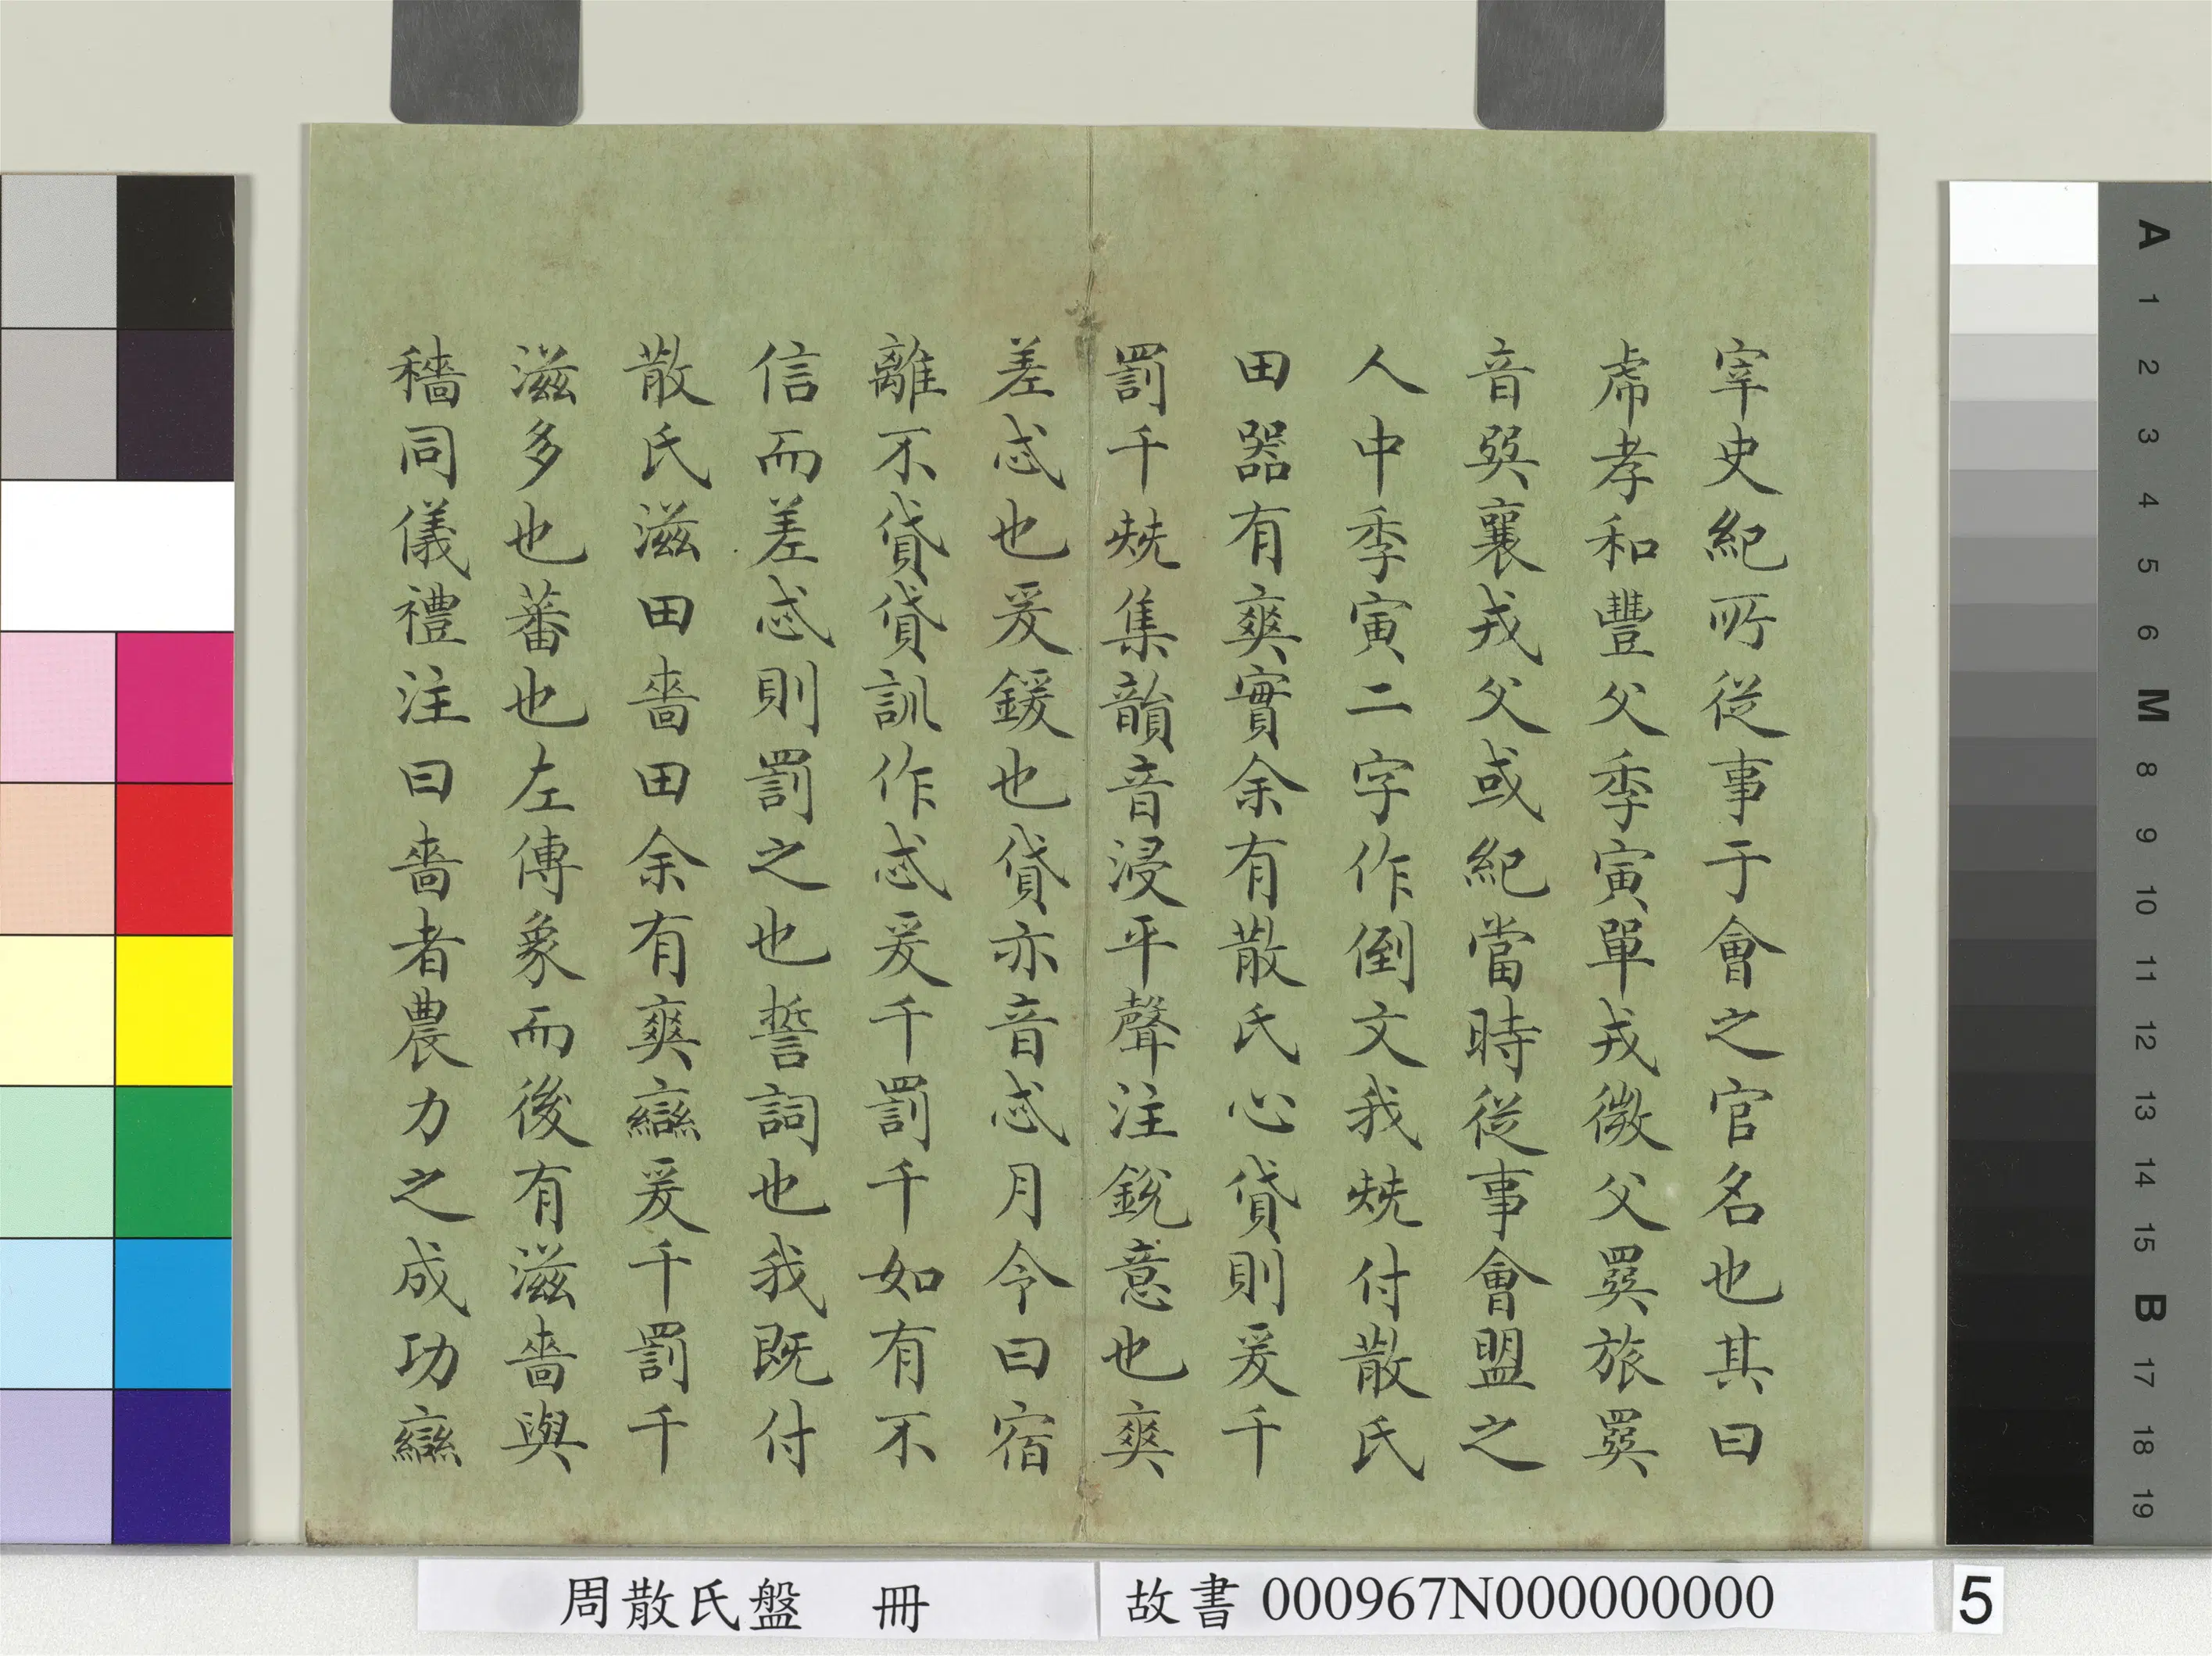 宰史紀所從事于會之官名也其曰
孝和豐父季寅單戎微父旅
音巺襄戎父或紀當時從事會盟之
人中季寅二字作倒文我兓付散氏
田器有爽實余有散氏心貸則爰千
罰千兓集韻音浸平聲注銳意也爽
差忒也爰鍰也貸亦音忒月令曰宿
離不貸貸訓作忒爰千罰千如有不
信而差忒則罰之也誓詞也我既付
散氏滋田嗇田余有爽䜌爰千罰千
滋多也蕃也左傳象而後有滋嗇與
穡同儀禮注曰嗇者農力之成功䜌
周散氏盤 冊
故書 000967N000000000
5
A
1
2
3
4
5
6
M
8
9
10
11
12
13
14
15
B
17
18
19